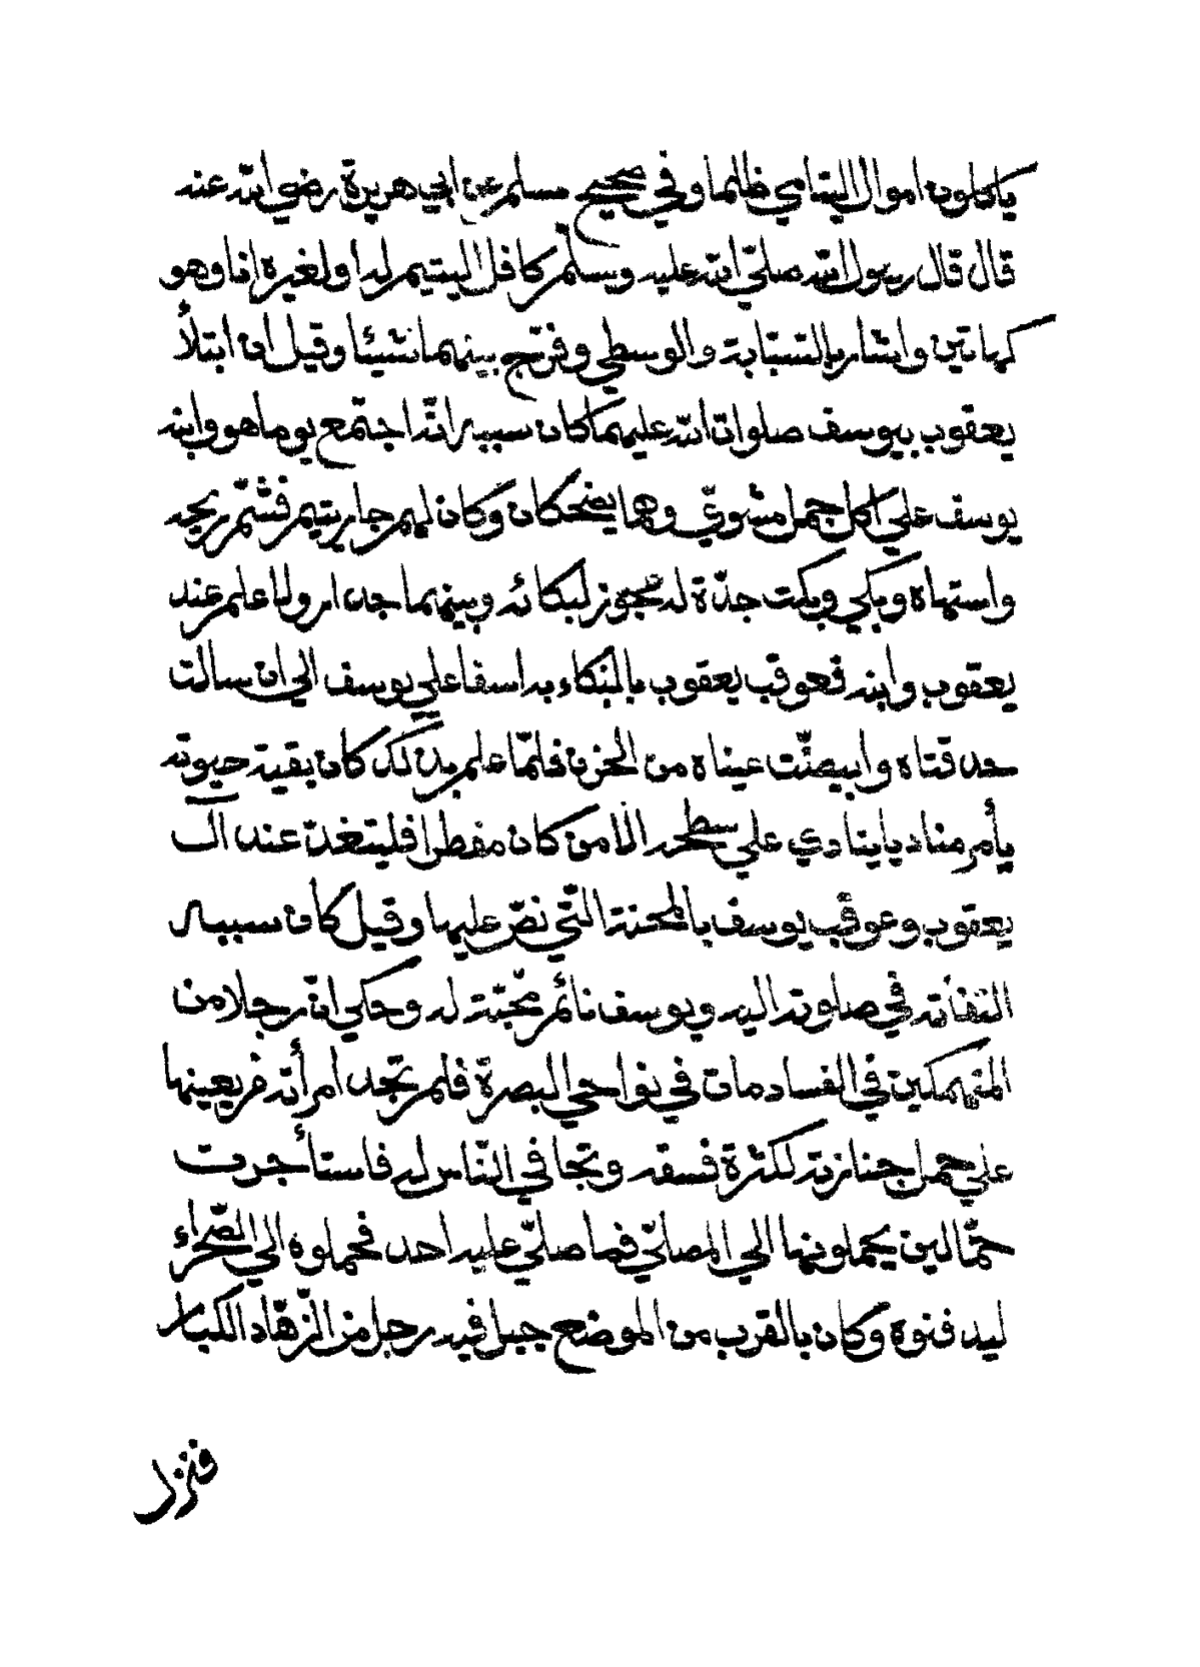 ياكلون اموال اليتامي ظلما وفي صحيح مسلم عن ابي هريرة رضي الله عنه
قال قال رسول الله صلّي الله عليه وسلّم كافل اليتيم له او لغيره انا وهو
كهاتين واشار بالسّبّابة والوسطي وفرّج بينهما شيئا وقيل ان ابتلأ
يعقوب بيوسف صلوات الله عليهما كان سببه انّه اجتمع يوما هو وابنه
يوسف علي اكل حمل مشويّ وهما يضحكان وكان لهم جار يتيم فشمّ ريحه
واشتهاه وبكي وبكت جدّة له عجوز لبكائه وبينهما جدار ولا علم عند
يعقوب وابنه فعوقب يعقوب بالبكاء به اسفا علي يوسف الي ان سالت
حدقتاه وابيضّت عيناه من الحزن فلمّا علم بذلك كان بقية حيوته
يأمر مناديا ينادي علي سطحه الا من كان مفطرا فليتغدّ عند آل
يعقوب وعوقب يوسف بالمحنة الّتي نصّ عليها وقيل كان سببه
التفاته في صلوته اليه ويوسف نائم محبّة له وحكي انّ رجلا من
المنهمكين في الفساد مات في نواحي البصرة فلم تجد امرأته من يعينها
علي حمل جنازته لكثرة فسقه وتجافي النّاس له فاستأجرت
حمّالين يحملونها الي المصلّي فما صلّي عليه احد فحملوه الي الصّحراء
ليدفنوه وكان بالقرب من الموضع جبل فيه رجل من الزّهّاد الكبار
فنزل